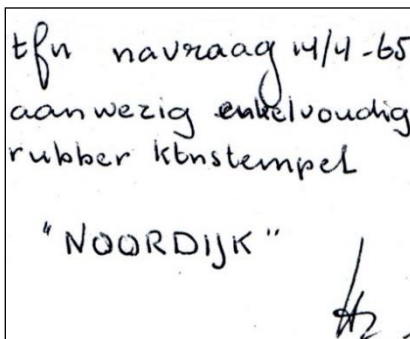 tfn navraag 14/4-65
aanwezig enkelvoudig
rubber ktnstempel
"NOORDIJK"